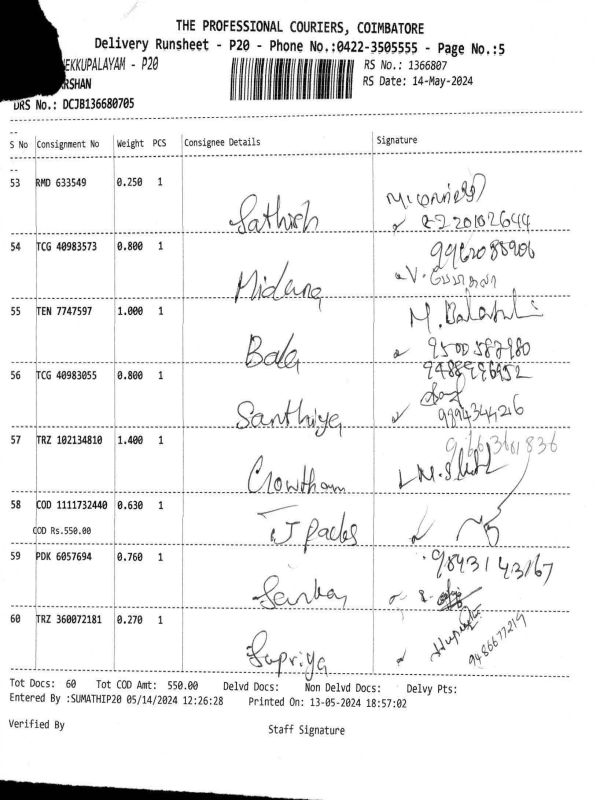 THE PROFESSIONAL COURIERS, COIMBATORE
Delivery Runsheet - P20 - Phone No.:0422-3505555 - Page No.:5
EKKUPALAYAM - P20
RS No.: 1366807
ARSHAN
RS Date: 14-May-2024
DRS No.: DCJB136680705
S No Consignment No Weight PCS Consignee Details Signature
53 RMD 633549 0.250 1
Sathish
54 TCG 40983573 0.800 1
Midana
V.
55 TEN 7747597 1.000 1
Bala
9500587980
56 TCG 40983055 0.800 1
Santhiya
9894344216
57 TRZ 102134810 1.400 1
Gowtham
58 COD 1111732440 0.630 1
COD Rs.550.00
59 PDK 6057694 0.760 1
9843143167
60 TRZ 360072181 0.270 1
Supriya
9486677219
Tot Docs: 60 Tot COD Amt: 550.00 Delvd Docs: Non Delvd Docs: Delvy Pts:
Entered By :SUMATHIP20 05/14/2024 12:26:28 Printed On: 13-05-2024 18:57:02
Verified By Staff Signature